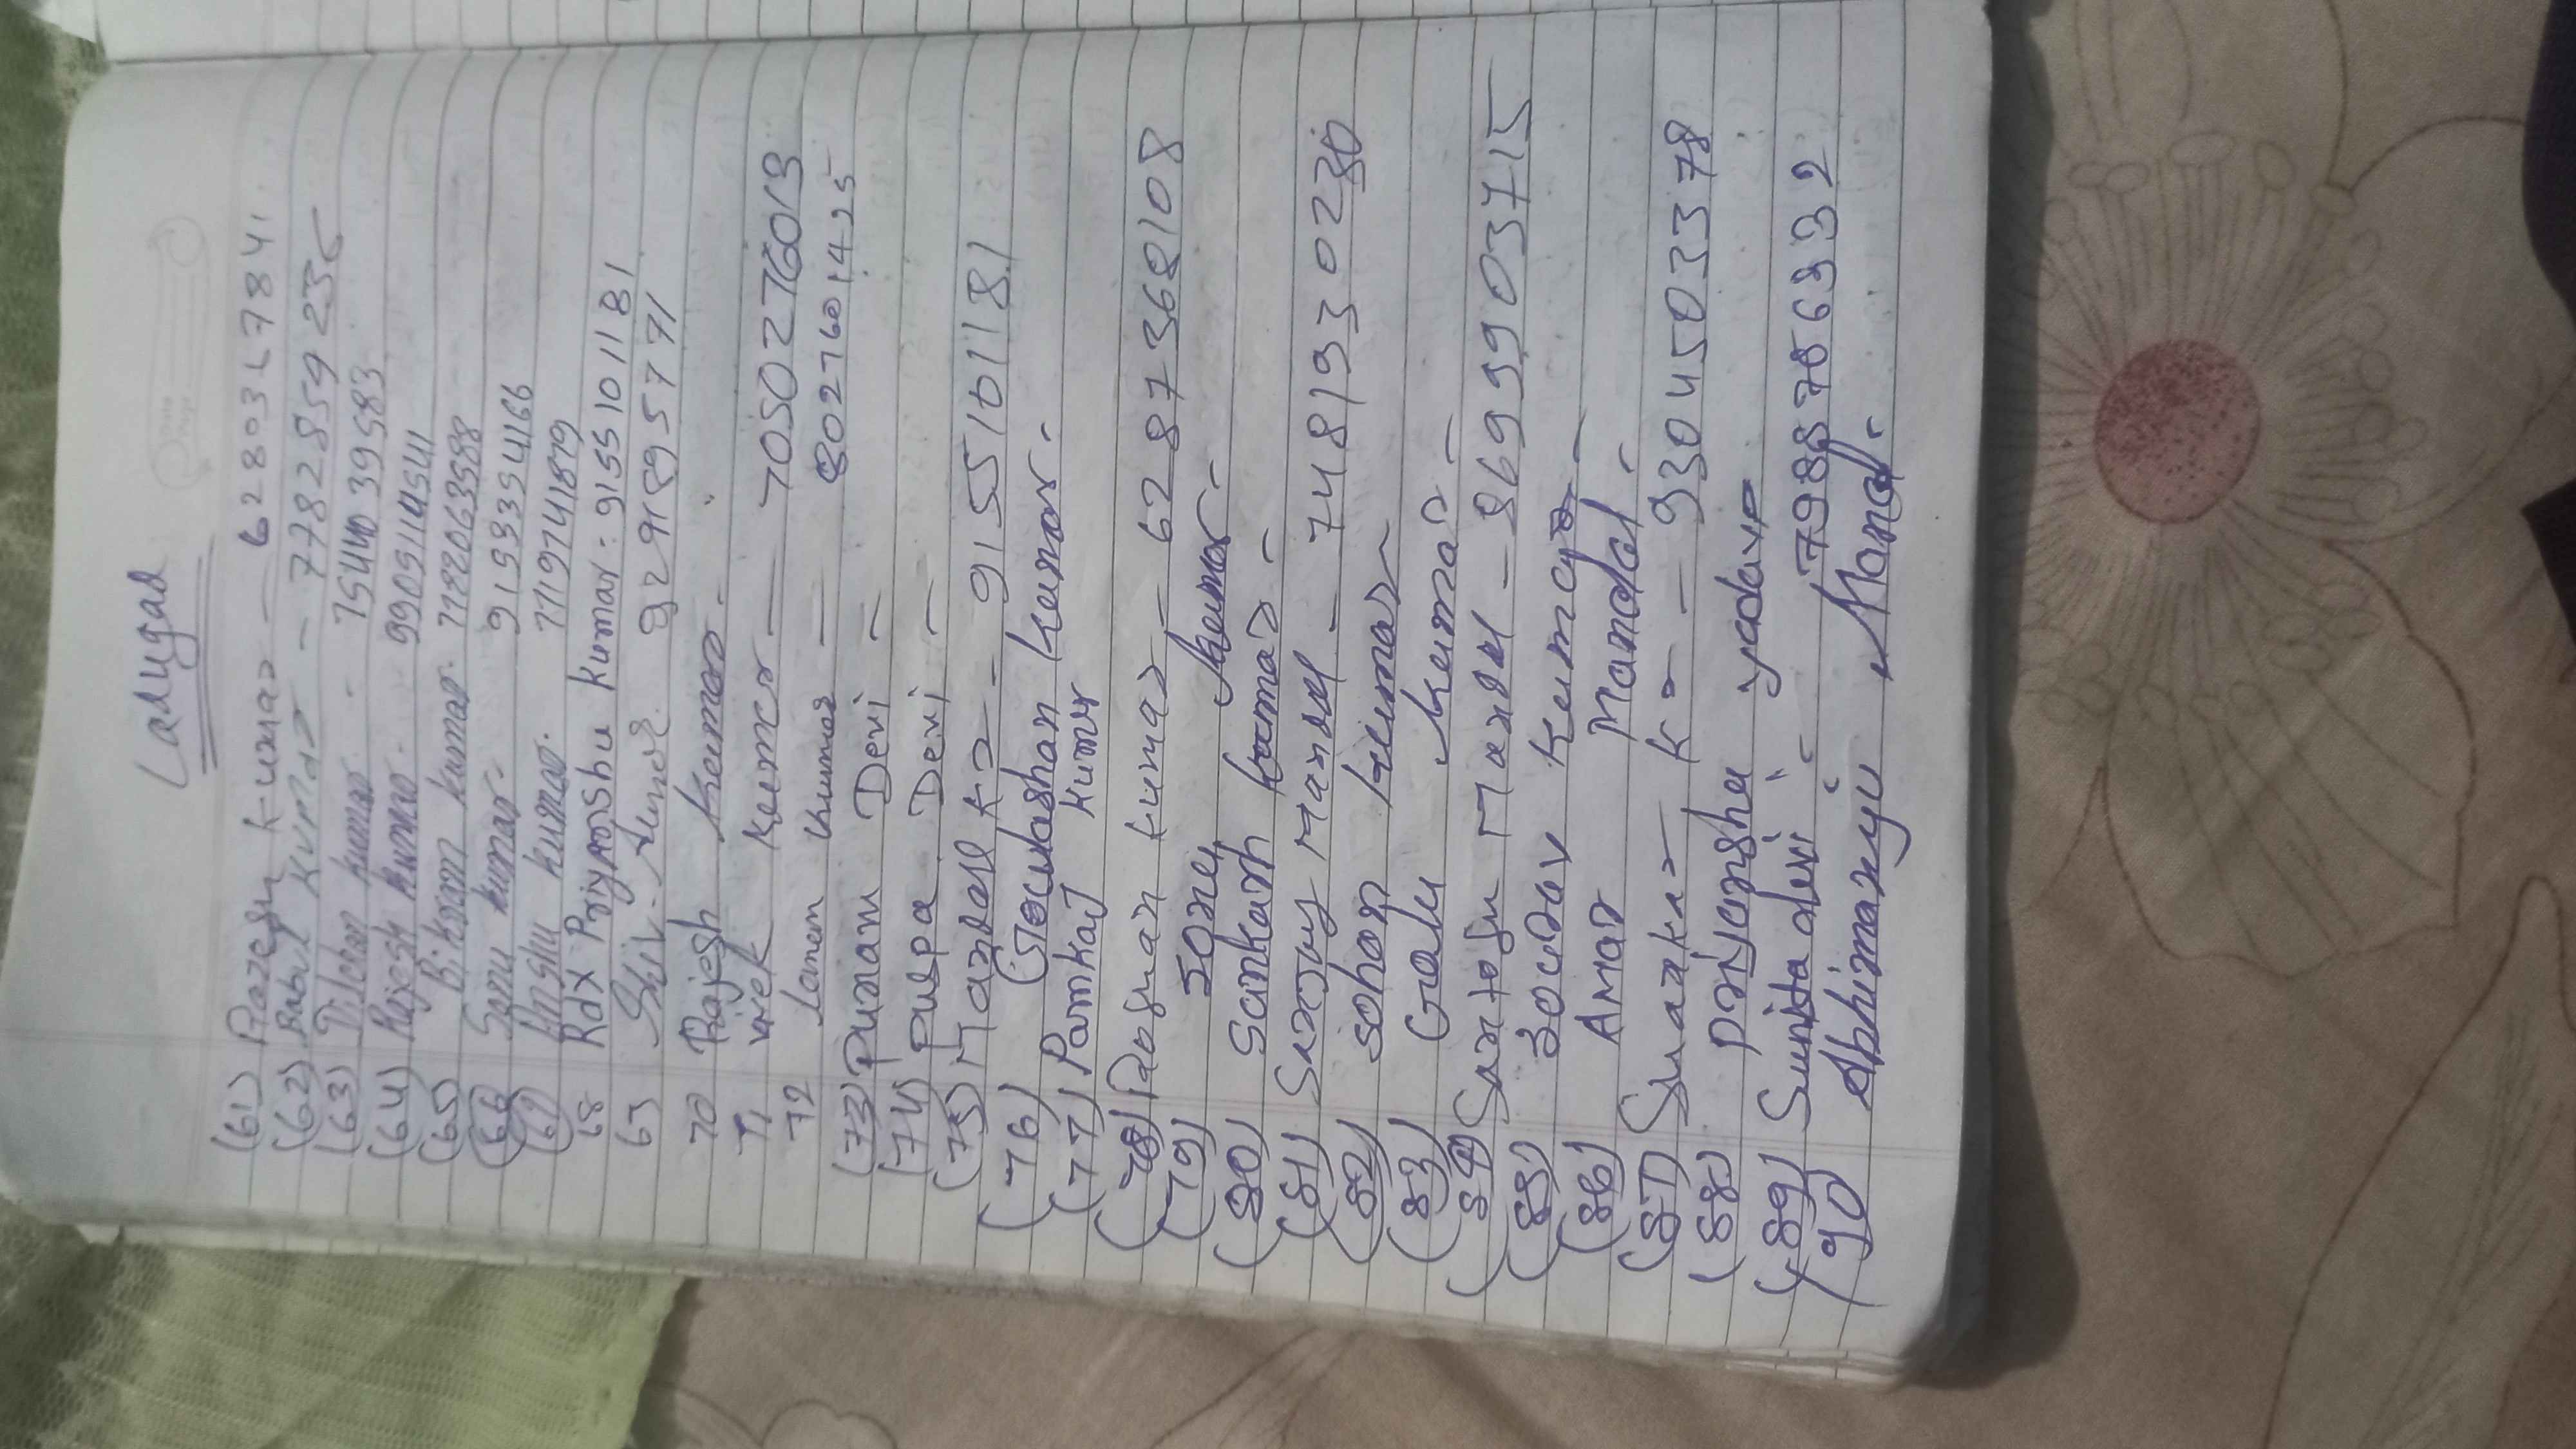 Ladugad
(61) Paresh Kumar — 6280317841
(62) Babul Kumar — 7782859236
(63) Dilchan kumar - 7544039583
(64) Rajesh Kumar - 9905114541
(65) Bikram kumar 7122063588
(66) Sonu kumar - 9193354166
(67) Anshu kumar. 7719741879
68 Rdx Priyanshu kumar - 9155101181
69 Shiv - 9291895771
70 Rajesh Kumar -
71 vivek Kumar — 7050276013
72 Kumar — 8027601425
(73) Punam Devi —
(74) Puspa Devi —
(75) Mandal Kr - 9155101181
(76) Kumar -
(77) Pamkaj Kumar
(78) Kumar - 6287368108
(79) Sonu Kumar -
(80) Sankash Kumar -
(81) Mandal - 7481930230
(82) Sohan Kumar -
(83) Golu Kumar -
(84) Santosh Mandal - 8699903715
(85) Kumar -
(86) Amar Mandal -
(87) Kr - 9304503378
(88) Priyanshu yadav
(89) Sunita devi " - 7988786332
(90 Abhimanyu " Mandal -